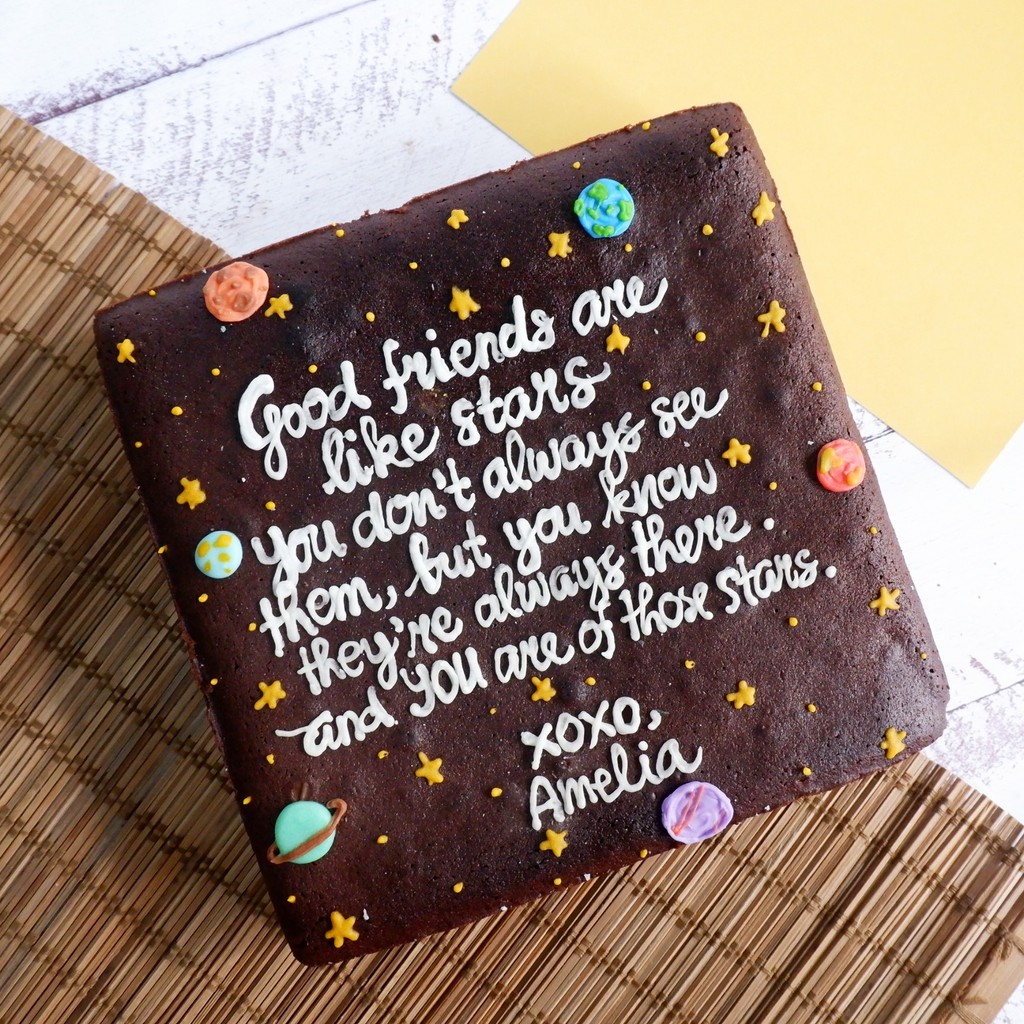 Good friends are
like stars
you don't always see
them, but you know
they're always there.
and you are of those stars.
xoxo,
Amelia